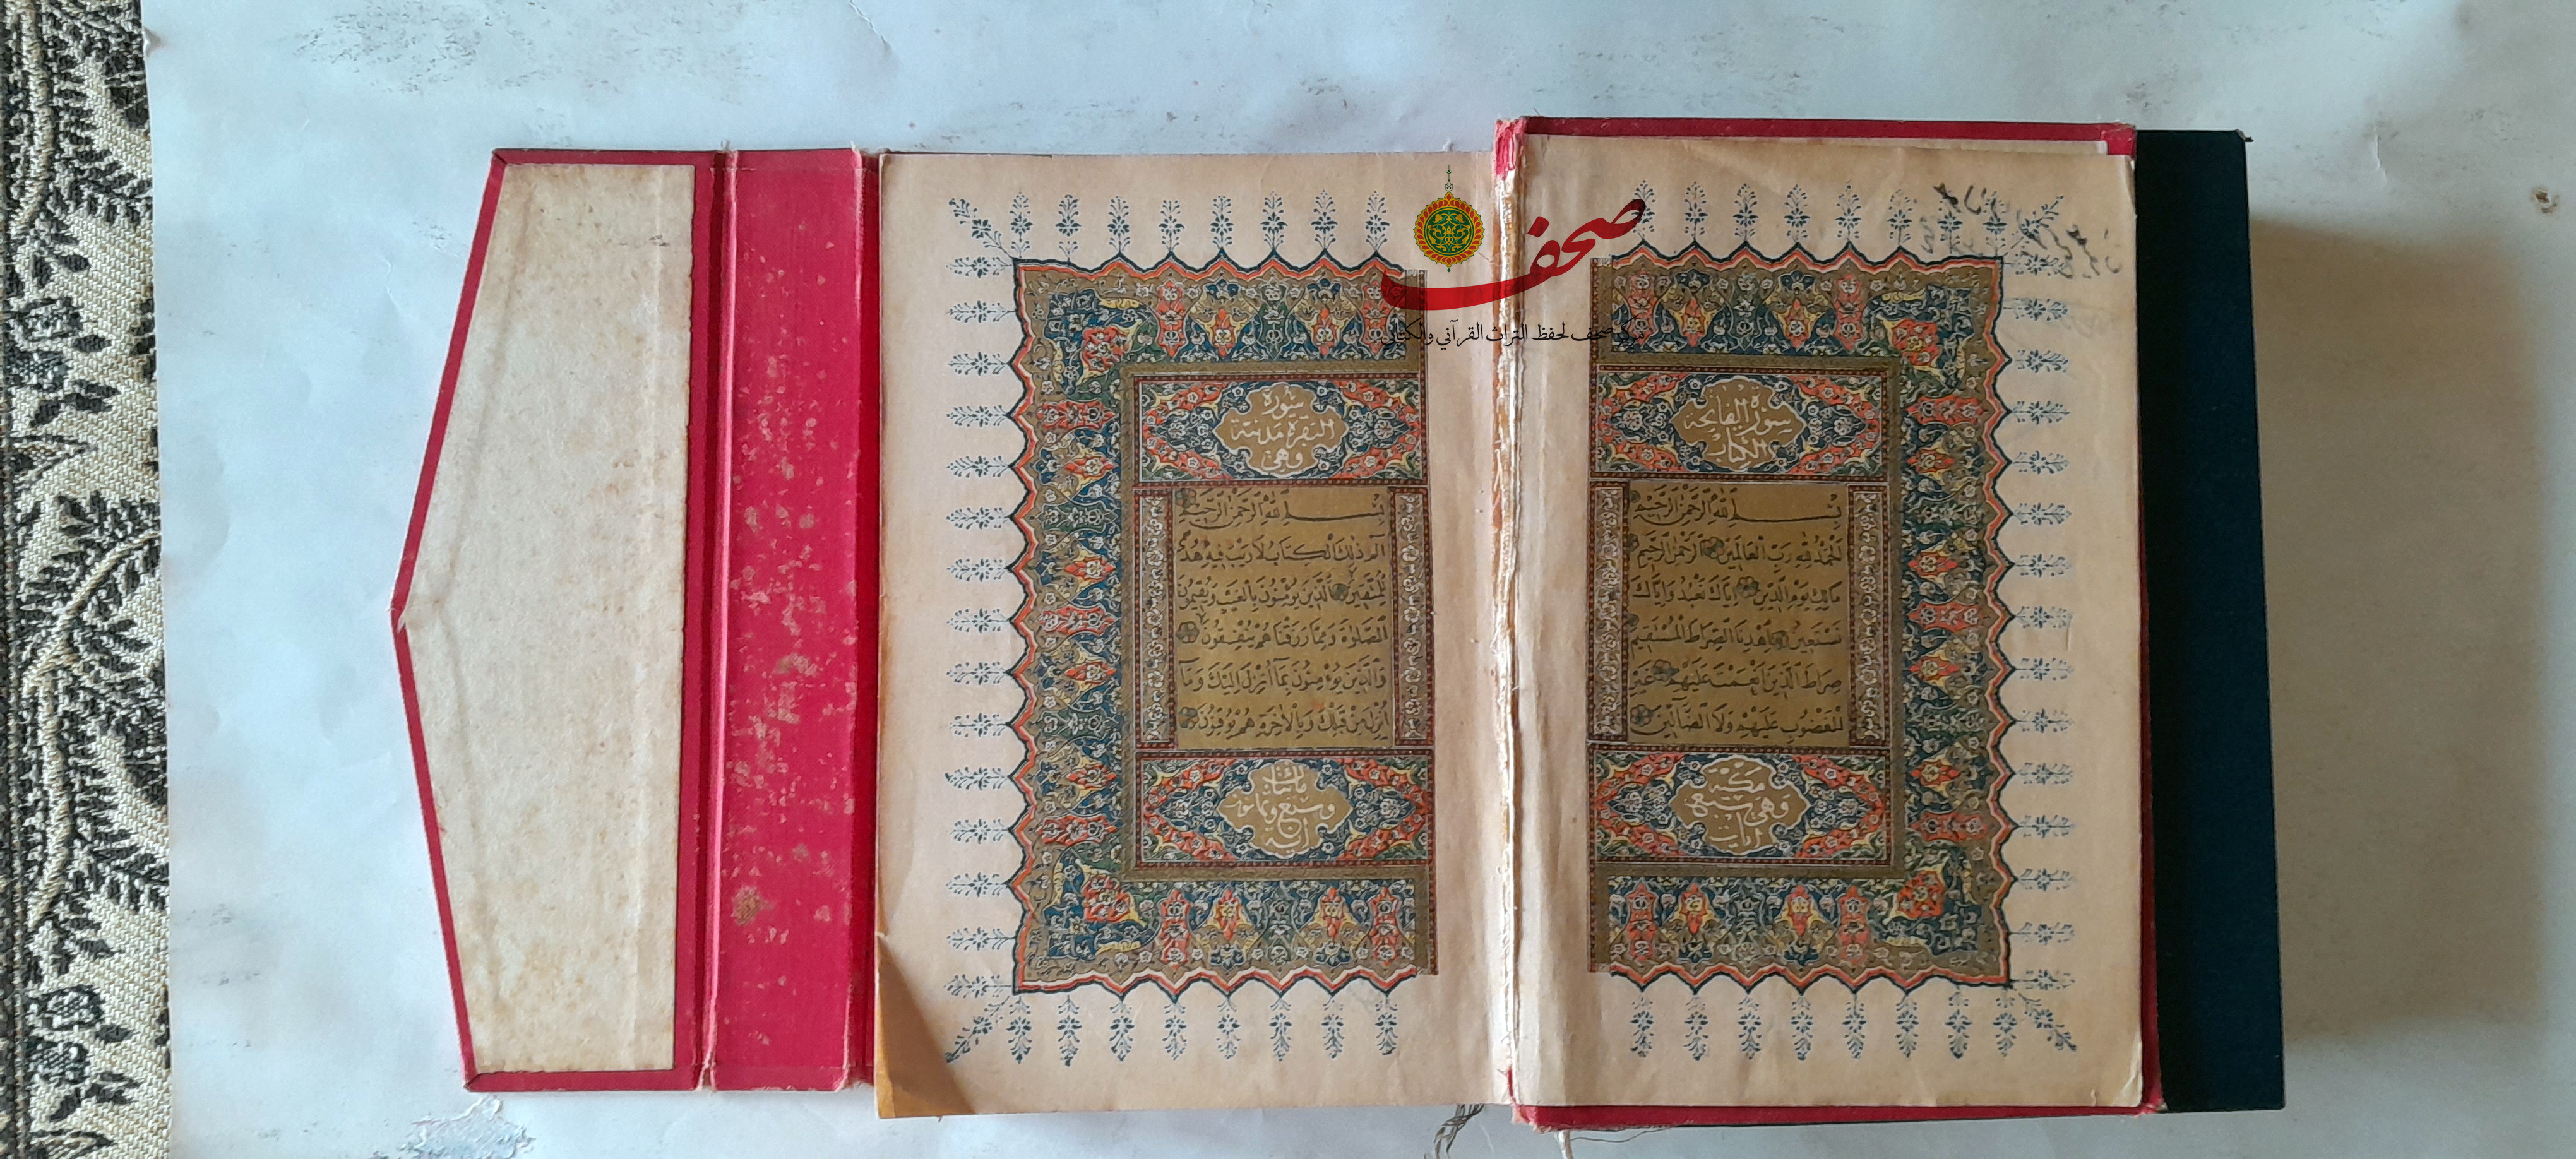 صحف
مركز صحف لحفظ التراث القرآني والكتابي
سورة الفاتحة
الكتاب
بِسْمِ اللّٰهِ الرَّحْمٰنِ الرَّحِيمِ
اَلْحَمْدُ لِلّٰهِ رَبِّ الْعَالَمِينَ اَلرَّحْمٰنِ الرَّحِيمِ
مَالِكِ يَوْمِ الدِّينِ اِيَّاكَ نَعْبُدُ وَاِيَّاكَ
نَسْتَعِينُ اِهْدِنَا الصِّرَاطَ الْمُسْتَقِيمَ
صِرَاطَ الَّذِينَ اَنْعَمْتَ عَلَيْهِمْ غَيْرِ
الْمَغْضُوبِ عَلَيْهِمْ وَلَا الضَّالِّينَ
مكية
وهي سبع
آيات
سورة
البقرة مدنية
وهي
بِسْمِ اللّٰهِ الرَّحْمٰنِ الرَّحِيمِ
الٓمٓ ذٰلِكَ الْكِتَابُ لَا رَيْبَ فِيهِ هُدًى
لِلْمُتَّقِينَ اَلَّذِينَ يُؤْمِنُونَ بِالْغَيْبِ وَيُقِيمُونَ
الصَّلٰوةَ وَمِمَّا رَزَقْنَاهُمْ يُنْفِقُونَ
وَالَّذِينَ يُؤْمِنُونَ بِمَٓا اُنْزِلَ اِلَيْكَ وَمَٓا
اُنْزِلَ مِنْ قَبْلِكَ وَبِالْاٰخِرَةِ هُمْ يُوقِنُونَ
مائتان
وسبع وثمانون
آية